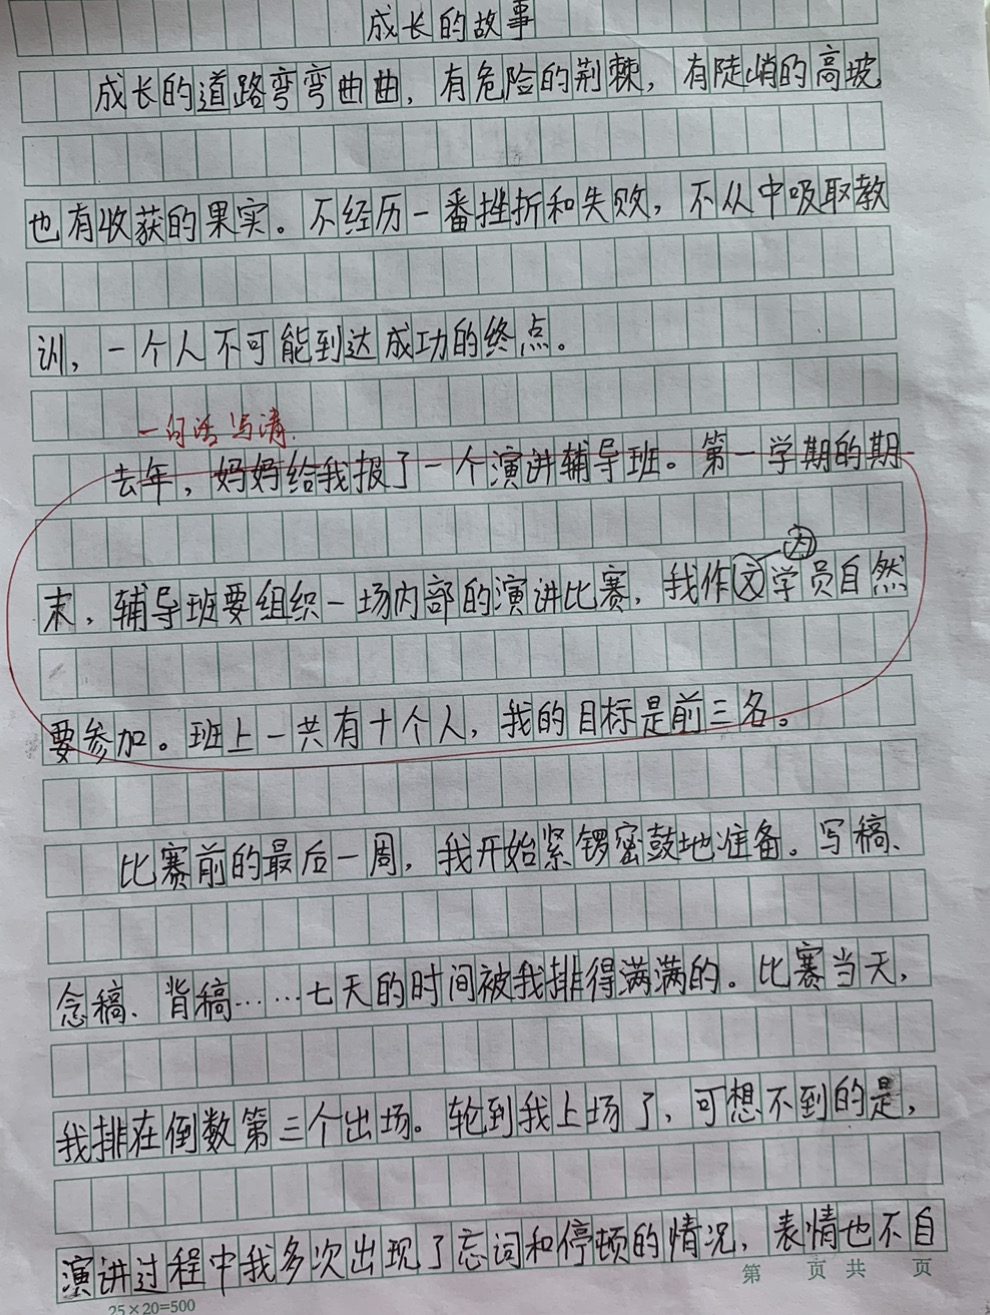 成长的故事
成长的道路弯弯曲曲，有危险的荆棘，有陡峭的高坡
也有收获的果实。不经历一番挫折和失败，不从中吸取教
训，一个人不可能到达成功的终点。
一句话写清.
去年，妈妈给我报了一个演讲辅导班。第一学期的期
内
末，辅导班要组织一场内部的演讲比赛，我作文学员自然
要参加。班上一共有十个人，我的目标是前三名。
比赛前的最后一周，我开始紧锣密鼓地准备。写稿、
念稿、背稿……七天的时间被我排得满满的。比赛当天，
我排在倒数第三个出场。轮到我上场了，可想不到的是，
演讲过程中我多次出现了忘词和停顿的情况，表情也不自
第 页 共 页
25×20=500